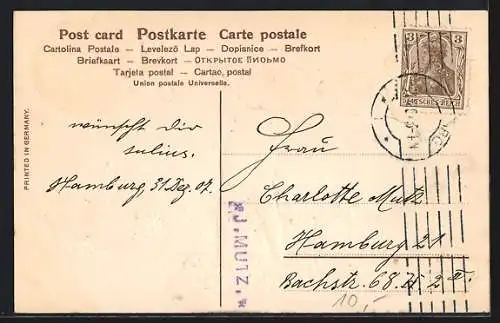 Post card Postkarte Carte postale
Cartolina Postale – Levelező Lap – Dopisnice – Brefkort
Briefkaart – Brevkort – ОТКРЫТОЕ ПИСЬМО
Tarjeta postal – Cartao, postal
Union postale Universelle.
PRINTED IN GERMANY.
3 3
DEUTSCHES REICH
wünscht dir
Julius.
Hamburg, 31. Dez. 07.
*J. MUTZ.*
Frau
Charlotte Mutz
Hamburg 21
Bachstr. 68. II.
10,-